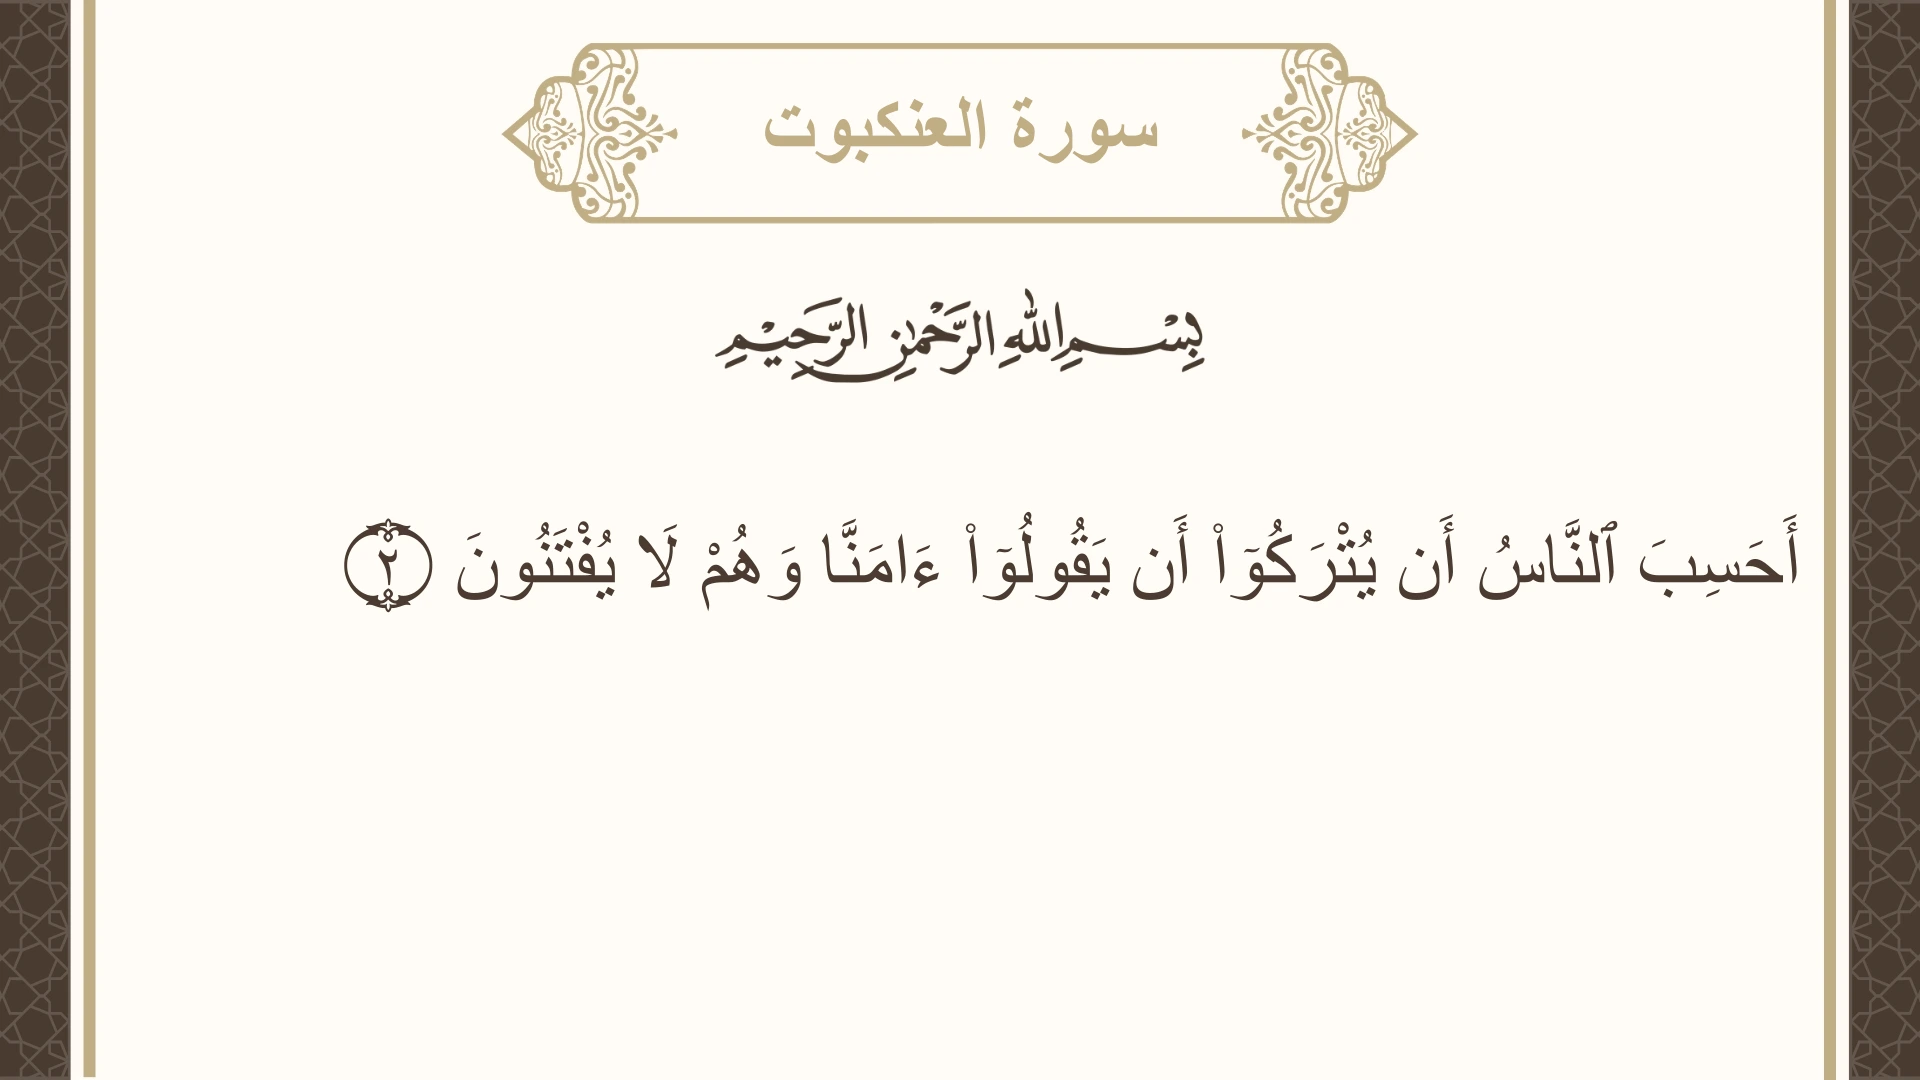 سورة العنكبوت
بِسْمِ اللهِ الرَّحْمٰنِ الرَّحِيْمِ
أَحَسِبَ ٱلنَّاسُ أَن يُتْرَكُوٓا۟ أَن يَقُولُوٓا۟ ءَامَنَّا وَهُمْ لَا يُفْتَنُونَ ٢